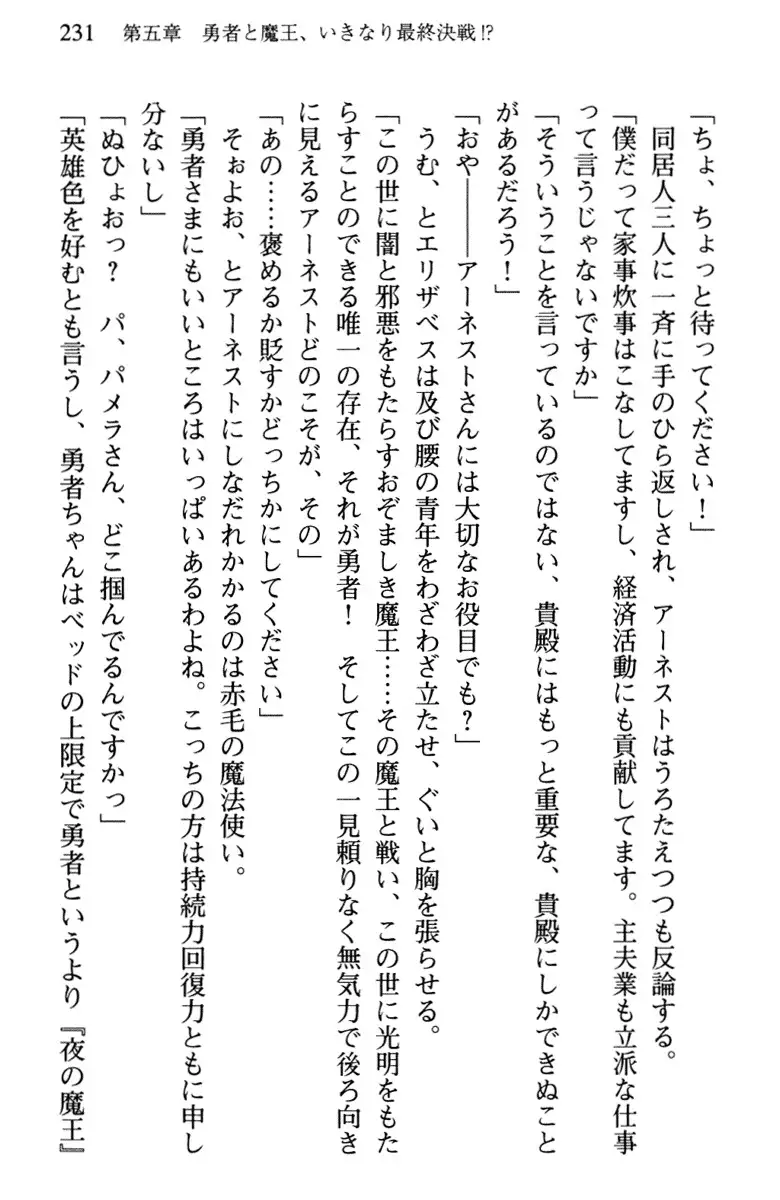 231　第五章　勇者と魔王、いきなり最終決戦!?
「ちょ、ちょっと待ってください！」
　同居人三人に一斉に手のひら返しされ、アーネストはうろたえつつも反論する。
「僕だって家事炊事はこなしてますし、経済活動にも貢献してます。主夫業も立派な仕事
って言うじゃないですか」
「そういうことを言っているのではない、貴殿にはもっと重要な、貴殿にしかできぬこと
があるだろう！」
「おや――アーネストさんには大切なお役目でも？」
　うむ、とエリザベスは及び腰の青年をわざわざ立たせ、ぐいと胸を張らせる。
「この世に闇と邪悪をもたらすおぞましき魔王……その魔王と戦い、この世に光明をもた
らすことのできる唯一の存在、それが勇者！　そしてこの一見頼りなく無気力で後ろ向き
に見えるアーネストどのこそが、その」
「あの……褒めるか貶すかどっちかにしてください」
　そぉよお、とアーネストにしなだれかかるのは赤毛の魔法使い。
「勇者さまにもいいところはいっぱいあるわよね。こっちの方は持続力回復力ともに申し
分ないし」
「ぬひょおっ？　パ、パメラさん、どこ掴んでるんですかっ」
「英雄色を好むとも言うし、勇者ちゃんはベッドの上限定で勇者というより『夜の魔王』